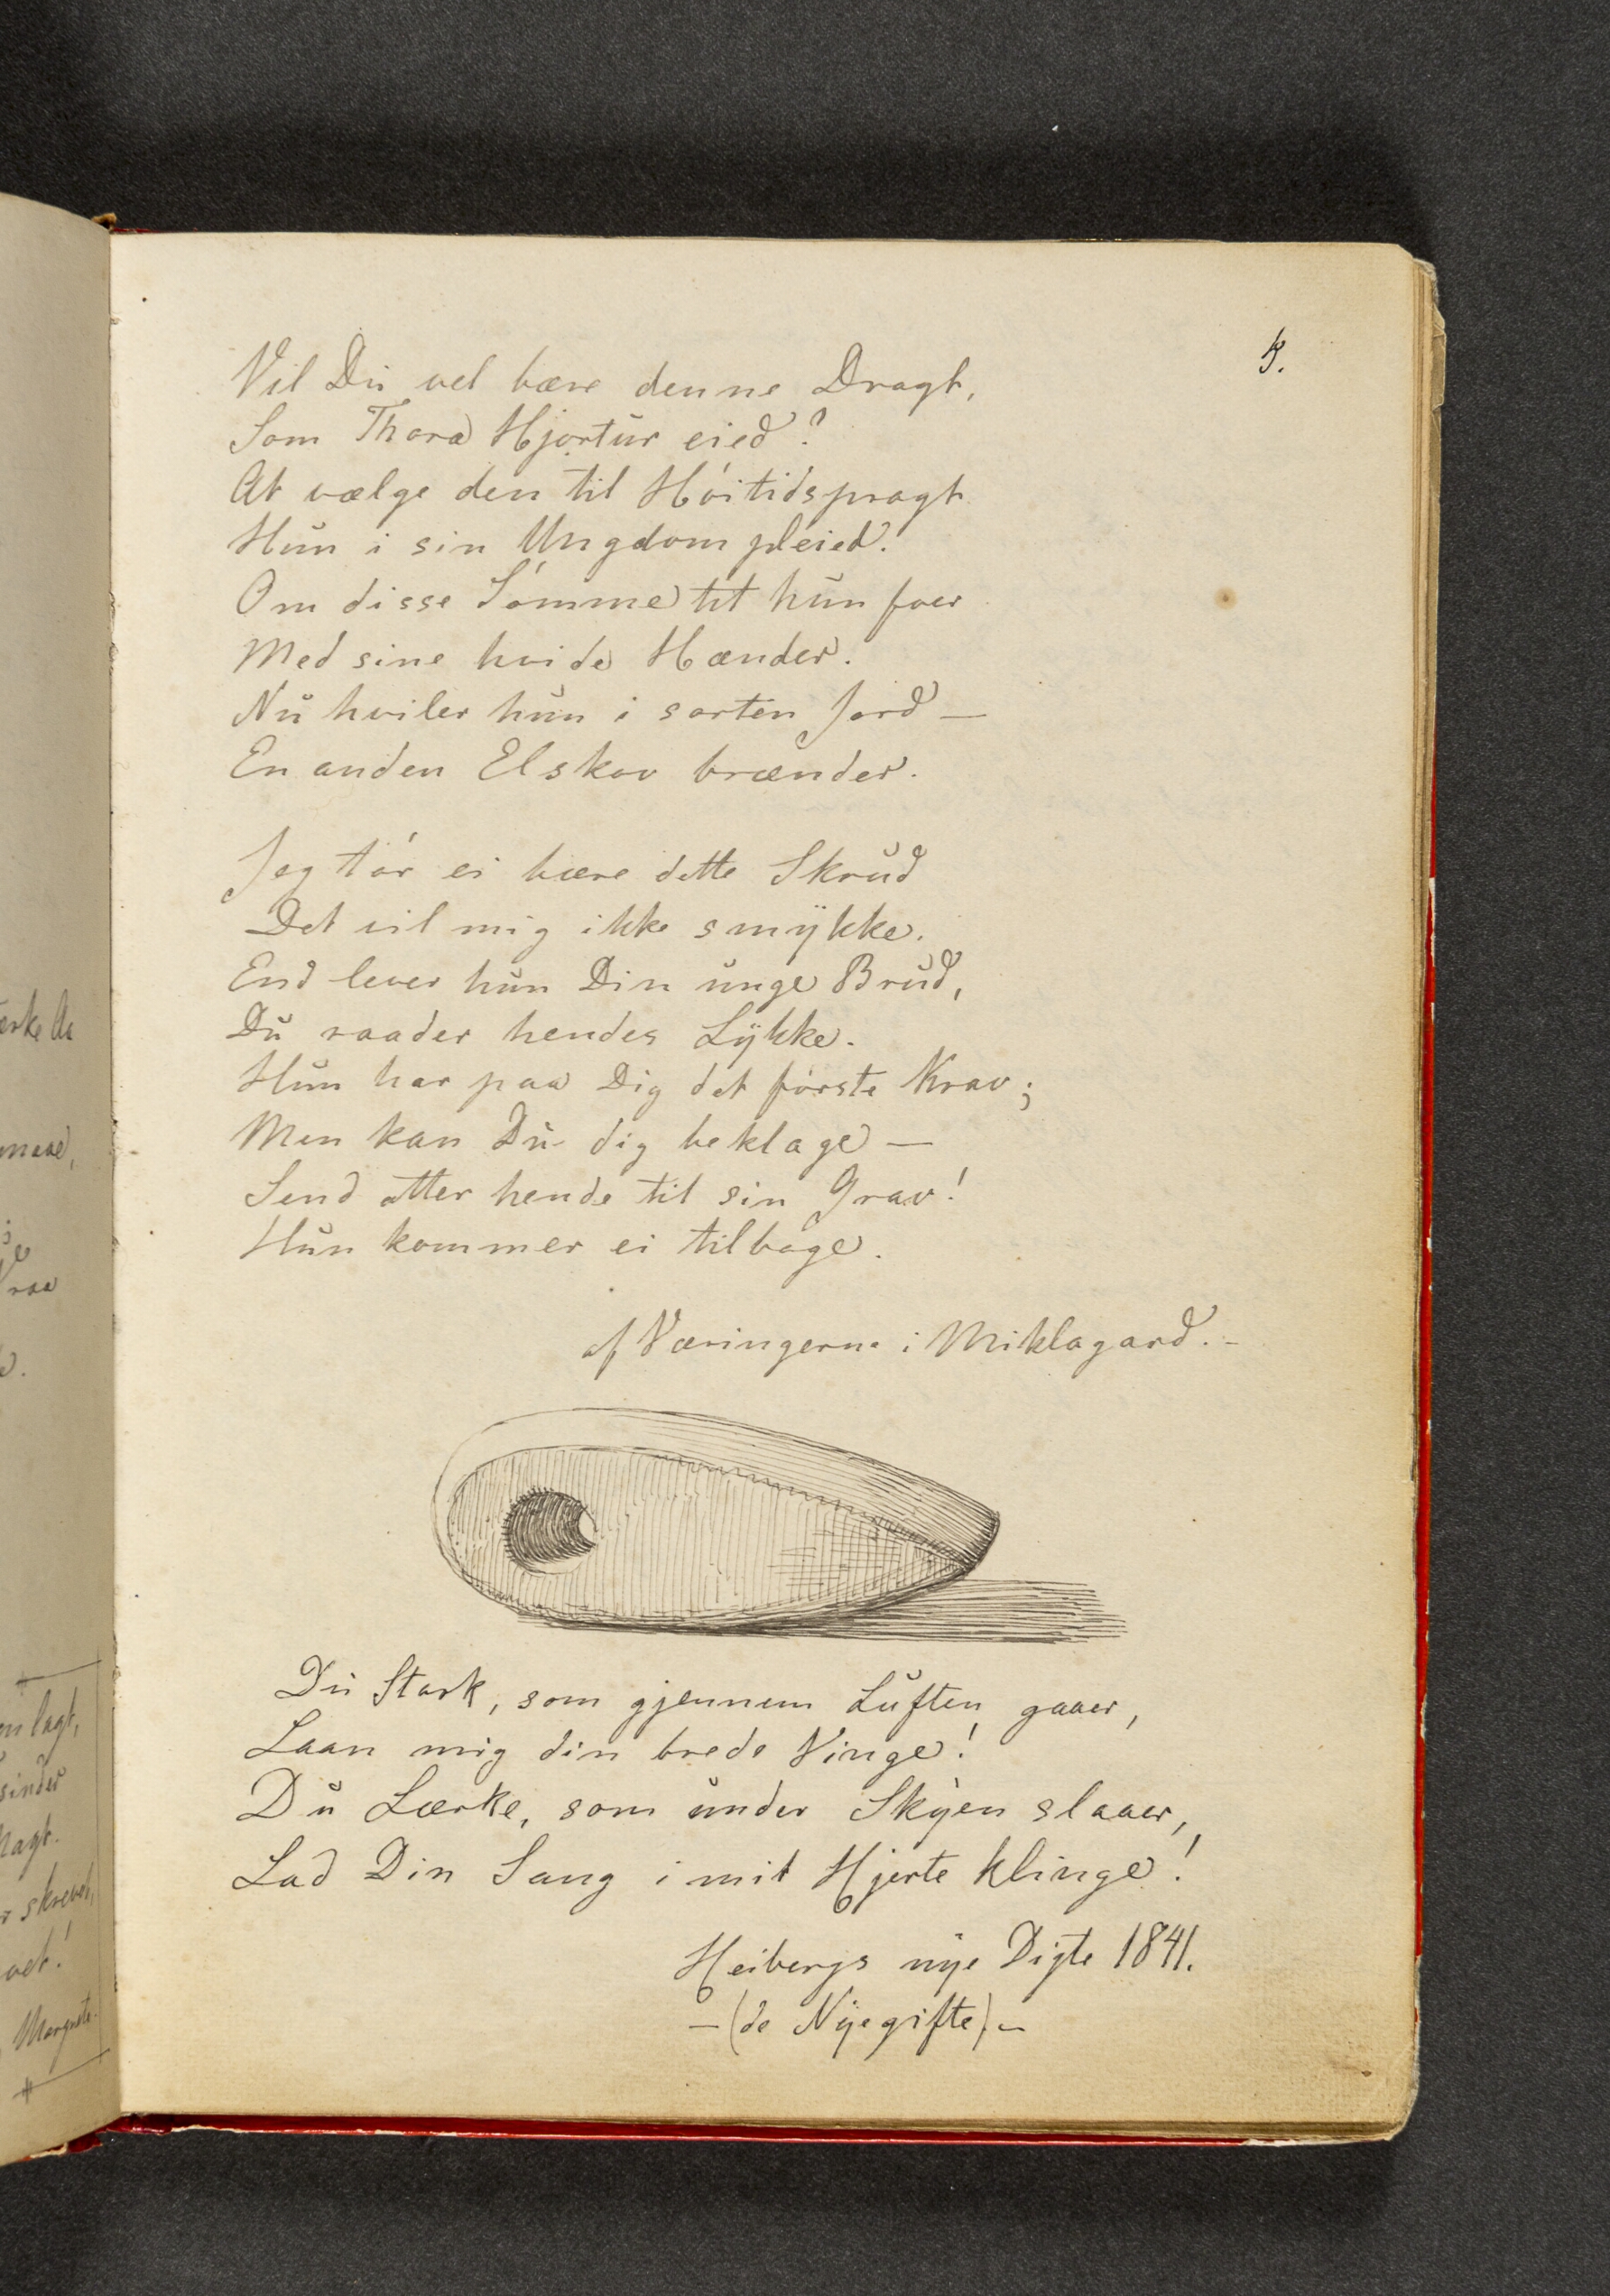 5.
Vil Du vel bære denne Dragt,
Som Thora Hjortur eied?
At vælge den til Höitidspragt
Hun i sin Ungdom pleied.
Om disse Sömme tit hun foer
Med sine hvide Hænder.
Nu hviler hun i sorten Jord —
En anden Elskov brænder.
Jeg tör ei bære dette Skrud
Det vil mig ikke smykke.
End lever hun Din unge Brud,
Du raader hendes Lykke.
Hun har paa Dig det förste Krav;
Men kan Du dig beklage —
Send atter hende til sin Grav!
Hun kommer ei tilbage.
af Væringerne i Miklagard. -
Du Stork, som gjennem Luften gaaer,
Laan mig din brede Vinge!
Du Lærke, som under Skyen slaaer,
Lad Din Sang i mit Hjerte klinge!
Heibergs nye Digte 1841.
- (de Nyegifte). -